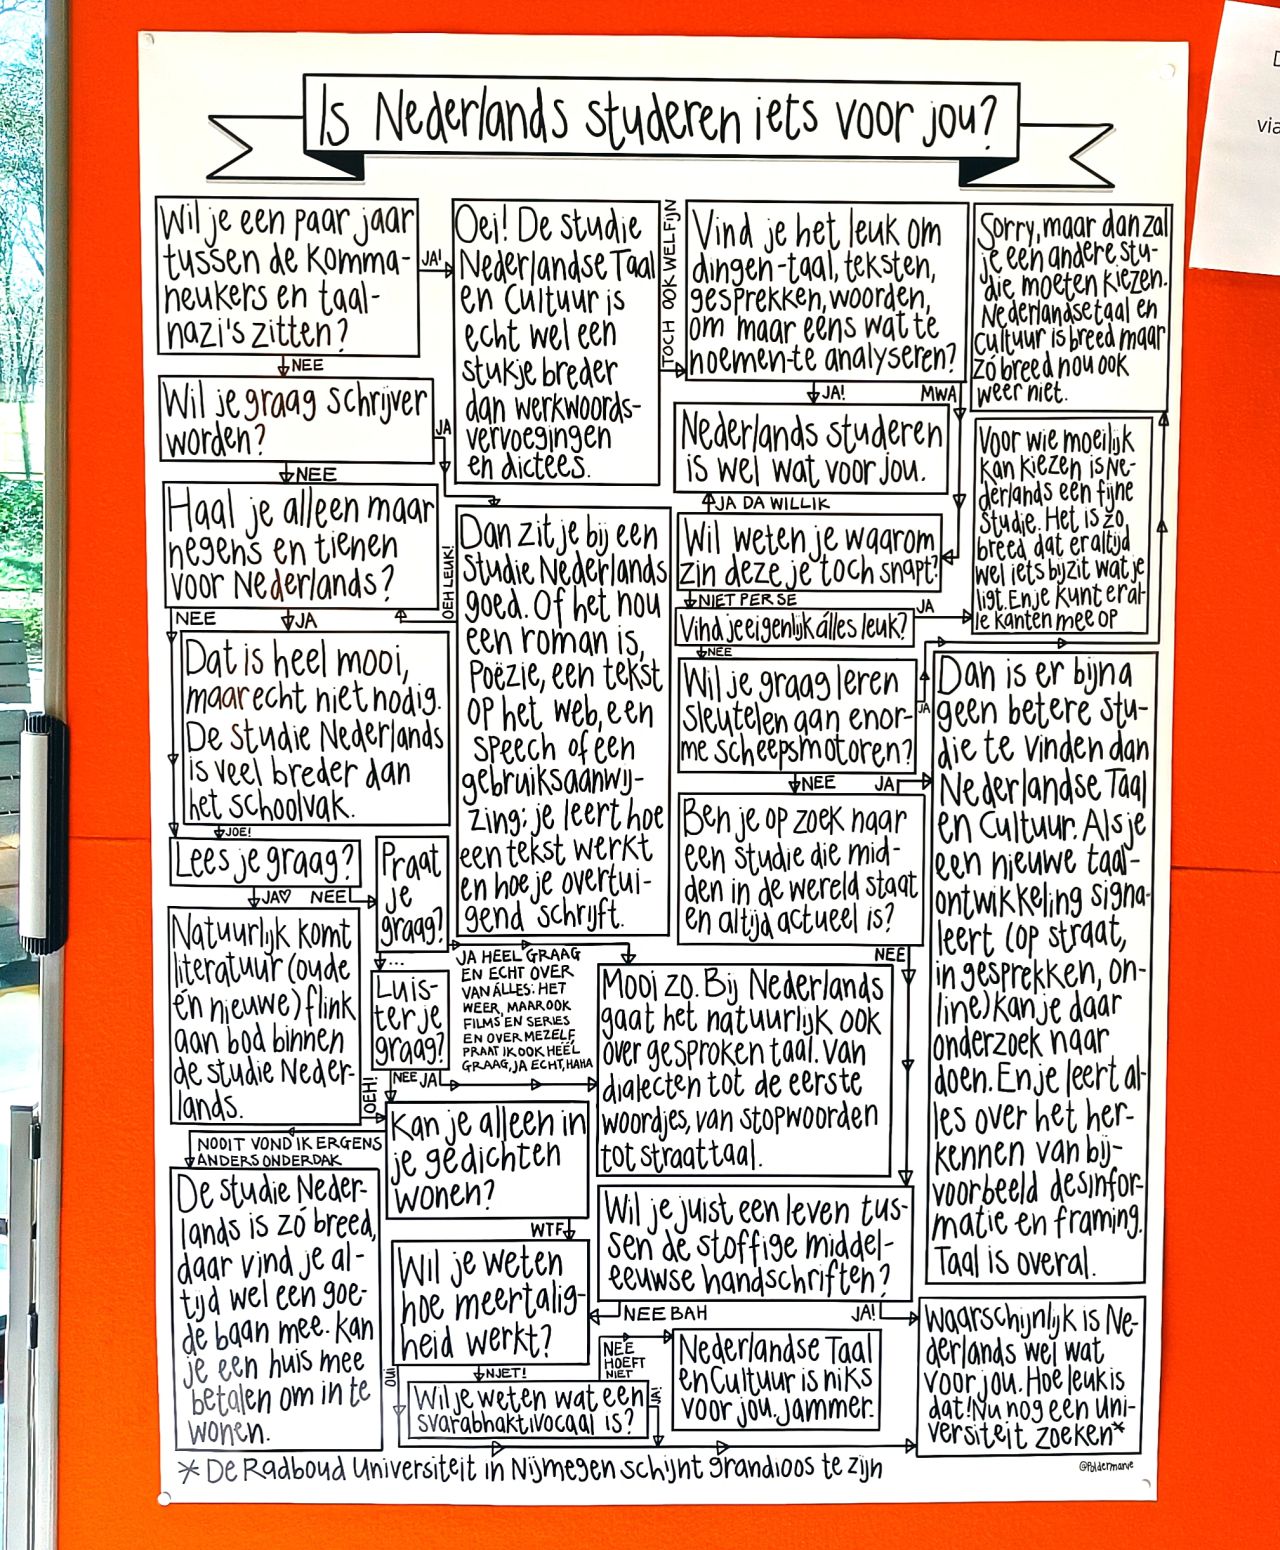 Is Nederlands studeren iets voor jou?
Wil je een paar jaar
tussen de komma-
neukers en taal-
nazi's zitten?
JA!
NEE
Oei! De studie
Nederlandse Taal
en Cultuur is
echt wel een
stukje breder
dan werkwoords-
vervoegingen
en dictees.
TOCH OOK WEL FIJN
Vind je het leuk om
dingen-taal, teksten,
gesprekken, woorden,
om maar eens wat te
noemen-te analyseren?
JA!
MWA
Sorry, maar dan zal
je een andere stu-
die moeten kiezen.
Nederlandse taal en
Cultuur is breed maar
zó breed nou ook
weer niet.
Wil je graag schrijver
worden?
JA
NEE
Nederlands studeren
is wel wat voor jou.
JA DA WILLIK
Voor wie moeilijk
kan kiezen is Ne-
derlands een fijne
studie. Het is zo
breed dat er altijd
wel iets bijzit wat je
ligt. En je kunt er al-
le kanten mee op
Haal je alleen maar
negens en tienen
voor Nederlands?
NEE
JA
OEH LEUK!
Dan zit je bij een
studie Nederlands
goed. Of het nou
een roman is,
Poëzie, een tekst
op het web, een
speech of een
gebruiksaanwij-
zing: je leert hoe
een tekst werkt
en hoe je overtui-
gend schrijft.
Wil weten je waarom
zin deze je toch snapt?
NIET PER SE
Vind je eigenlijk álles leuk?
JA
NEE
Dat is heel mooi,
maar echt niet nodig.
De studie Nederlands
is veel breder dan
het schoolvak.
JOE!
Wil je graag leren
sleutelen aan enor-
me scheepsmotoren?
JA
NEE
JA
Dan is er bijna
geen betere stu-
die te vinden dan
Nederlandse Taal
en Cultuur. Als je
een nieuwe taal-
ontwikkeling signa-
leert (op straat,
in gesprekken, on-
line) kan je daar
onderzoek naar
doen. En je leert al-
les over het her-
kennen van bij-
voorbeeld desinfor-
matie en framing.
Taal is overal.
Lees je graag?
JA♡
NEE
Praat
je
graag?
...
Ben je op zoek naar
een studie die mid-
den in de wereld staat
en altijd actueel is?
NEE
Natuurlijk komt
literatuur (oude
én nieuwe) flink
aan bod binnen
de studie Neder-
lands.
OEH!
Luis-
ter je
graag?
NEE
JA
JA HEEL GRAAG
EN ECHT OVER
VAN ÁLLES: HET
WEER, MAAR OOK
FILMS EN SERIES
EN OVER MEZELF,
PRAAT IK OOK HEËL
GRAAG, JA ECHT, HAHA
Mooi zo. Bij Nederlands
gaat het natuurlijk ook
over gesproken taal. Van
dialecten tot de eerste
woordjes, van stopwoorden
tot straattaal.
Kan je alleen in
je gedichten
wonen?
NOOIT VOND IK ERGENS
ANDERS ONDERDAK
WTF
De studie Neder-
lands is zó breed,
daar vind je al-
tijd wel een goe-
de baan mee. Kan
je een huis mee
betalen om in te
wonen.
Wil je juist een leven tus-
sen de stoffige middel-
eeuwse handschriften?
NEE BAH
JA!
Wil je weten
hoe meertalig-
heid werkt?
OUI
NJET!
NEE
HOEFT
NIET
Nederlandse Taal
en Cultuur is niks
voor jou. Jammer.
Waarschijnlijk is Ne-
derlands wel wat
voor jou. Hoe leuk is
dat! Nu nog een uni-
versiteit zoeken*
Wil je weten wat een
svarabhaktivocaal is?
JA!
* De Radboud Universiteit in Nijmegen schijnt grandioos te zijn
@Poldermarve
via